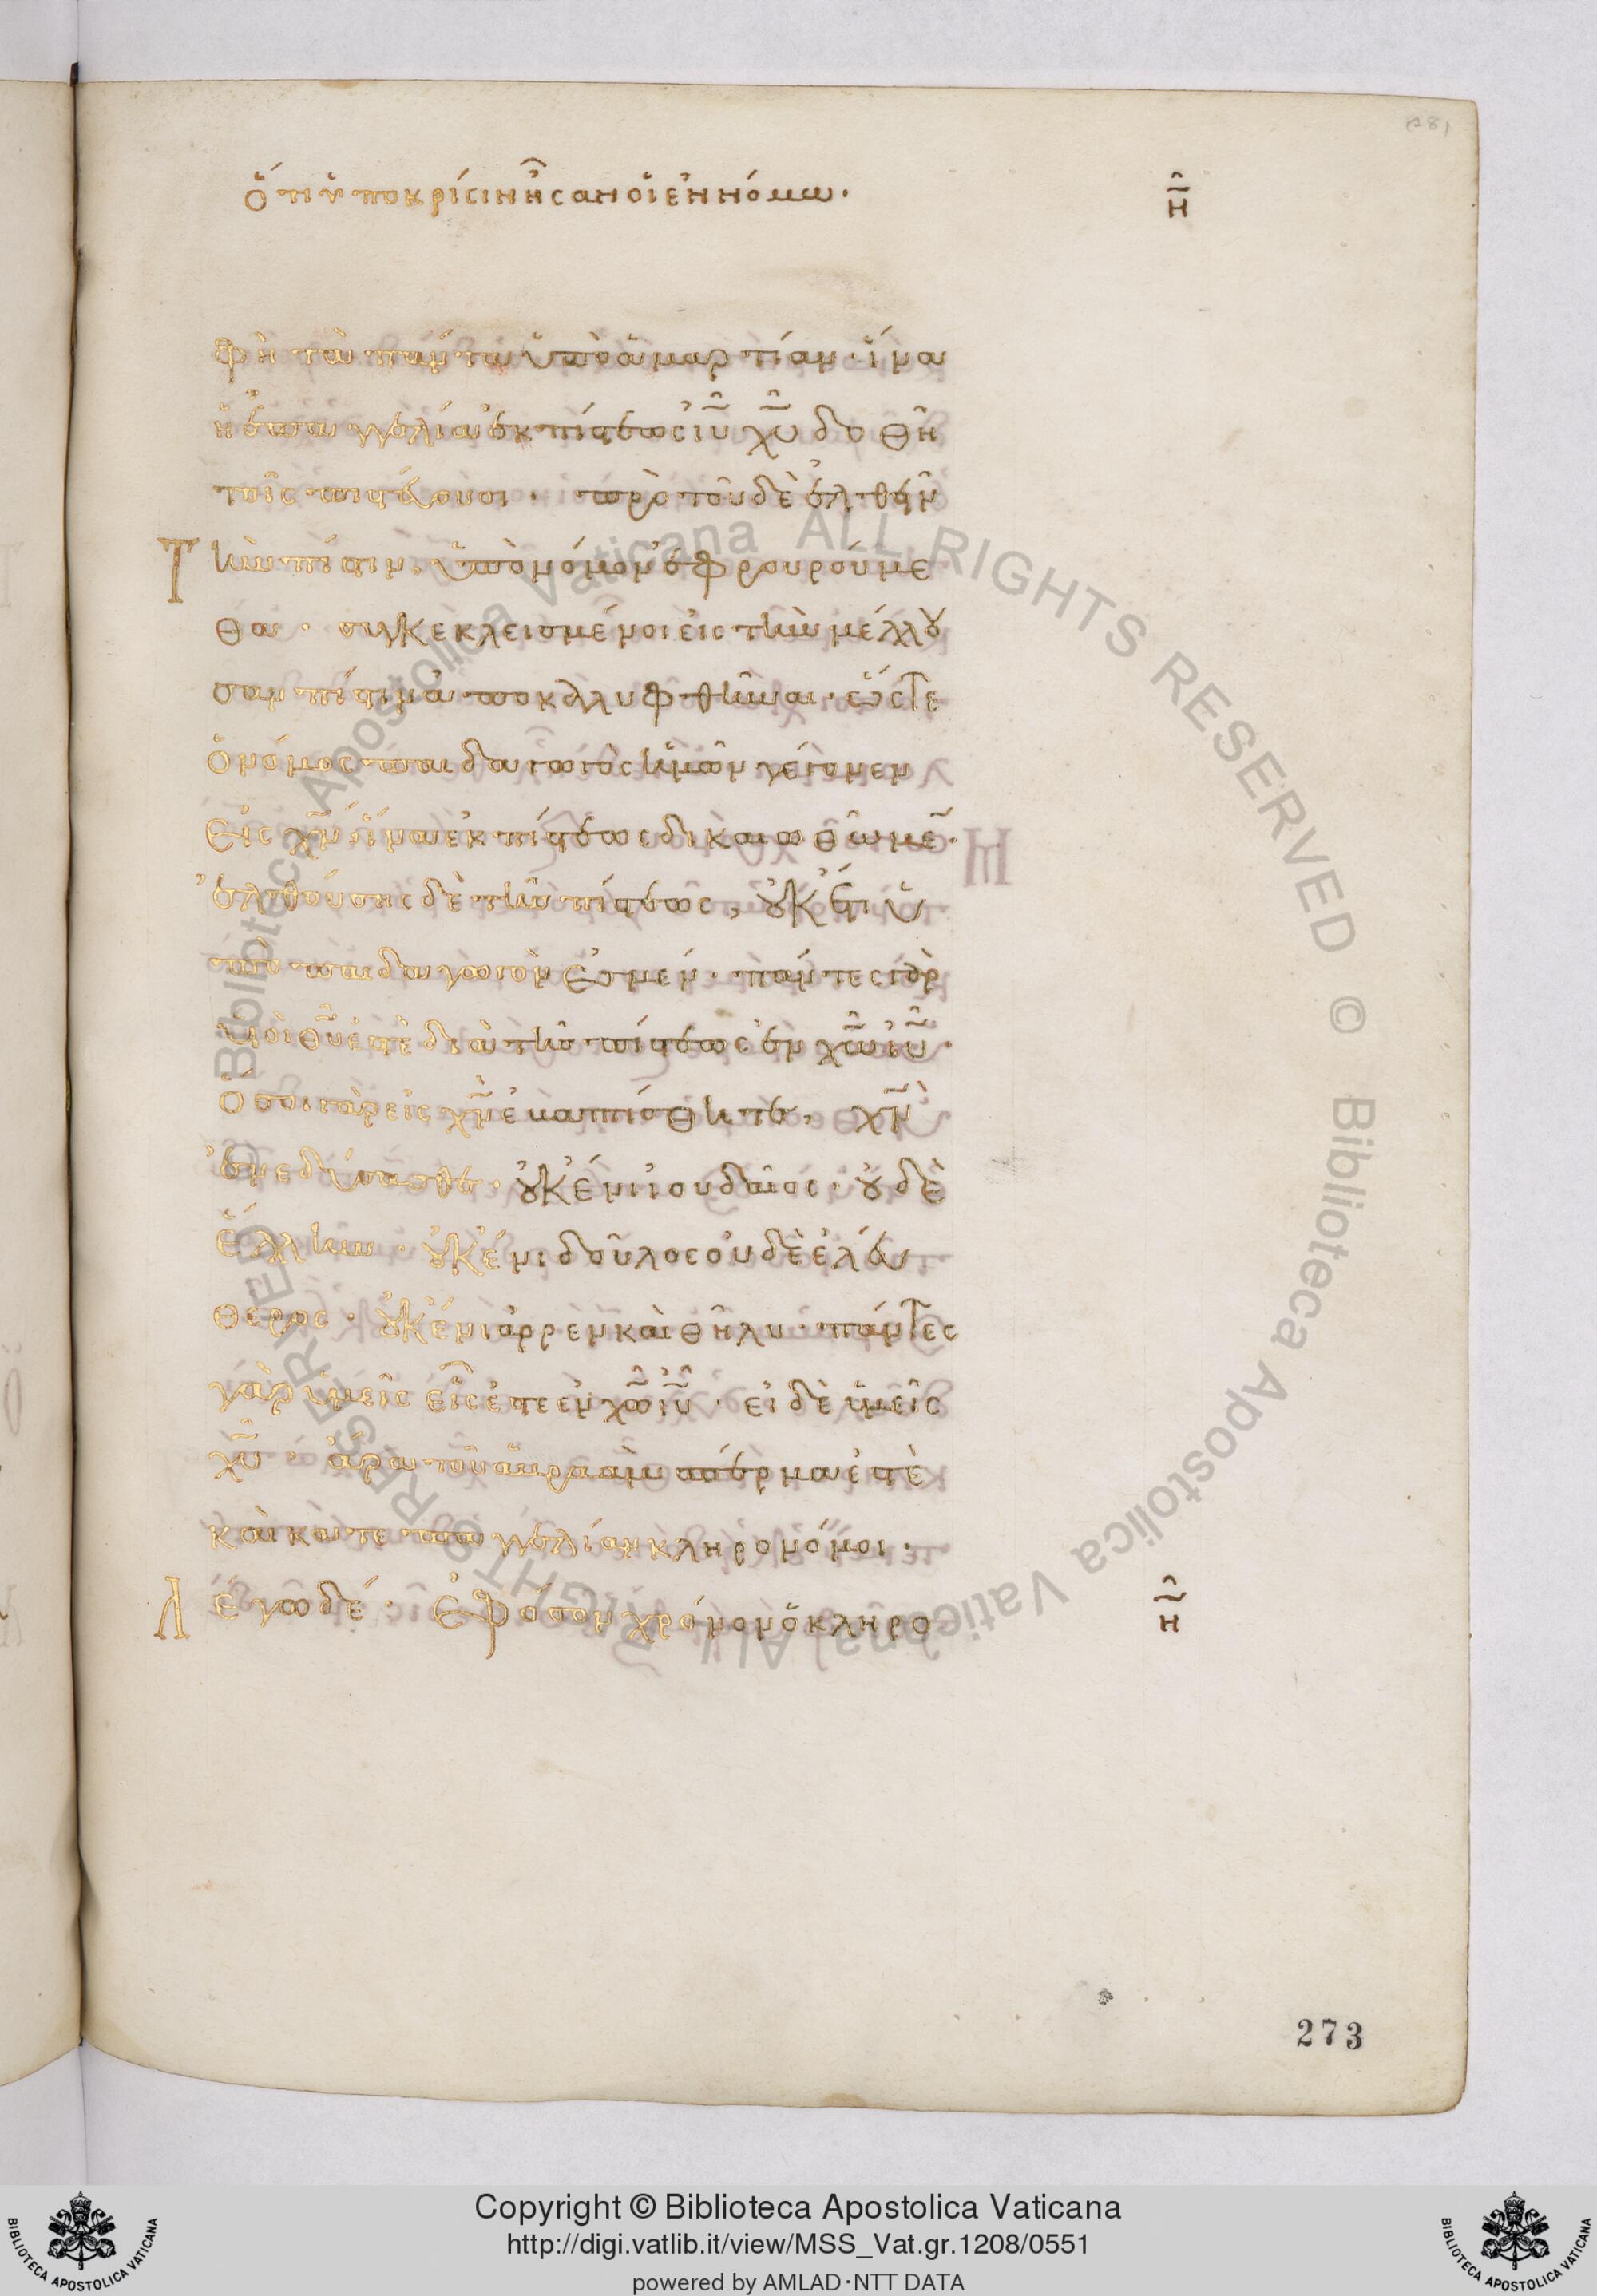 ὅτι ὑπόκρισιν ἦσαν οἱ ἐν νόμω· η
φὴ τὰ πάντα ὑπὸ ἁμαρτίαν· ἵνα
ἡ ἐπαγγελία ἐκ πίστεως ιυ χυ δοθῆ
τοῖς πιστεύουσι· πρὸ τοῦ δὲ ἐλθεῖν
τὴν πίστιν, ὑπὸ νόμον ἐφρουρούμε
θα· συγκεκλεισμένοι εἰς τὴν μέλλου
σαν πίστιν ἀποκαλυφθῆναι· ὥστε
ὁ νόμος παιδαγωγὸς ἡμῶν γέγονεν
εἰς χν, ἵνα ἐκ πίστεως δικαιωθῶμεν·
ἐλθούσης δὲ τῆς πίστεως, οὐκέτι ὑ
πὸ παιδαγωγὸν ἐσμέν· πάντες γὰρ
υἱοὶ θυ ἐστὲ διὰ τῆς πίστεως ἐν χω ιυ·
ὅσοι γὰρ εἰς χν ἐβαπτίσθητε, χν
ἐνεδύσασθε· οὐκ ἔνι ἰουδαῖος· οὐδὲ
ἕλλην· οὐκ ἔνι δοῦλος οὐδὲ ἐλεύ
θερος· οὐκ ἔνι ἄρρεν καὶ θῆλυ· πάντες
γὰρ ὑμεῖς εἷς ἐστε ἐν χω ιυ· εἰ δὲ ὑμεῖς
χυ· ἄρα τοῦ ἀβραὰμ σπέρμα ἐστὲ
καὶ κατ' ἐπαγγελίαν κληρονόμοι·
Λέγω δέ· ἐφ' ὅσον χρόνον ὁ κληρο η
273
Copyright © Biblioteca Apostolica Vaticana
http://digi.vatlib.it/view/MSS_Vat.gr.1208/0551
powered by AMLAD·NTT DATA
BIBLIOTECA APOSTOLICA VATICANA
BIBLIOTECA APOSTOLICA VATICANA
© Biblioteca Apostolica Vaticana ALL RIGHTS RESERVED © Biblioteca Apostolica Vaticana ALL RIGHTS RESERVED